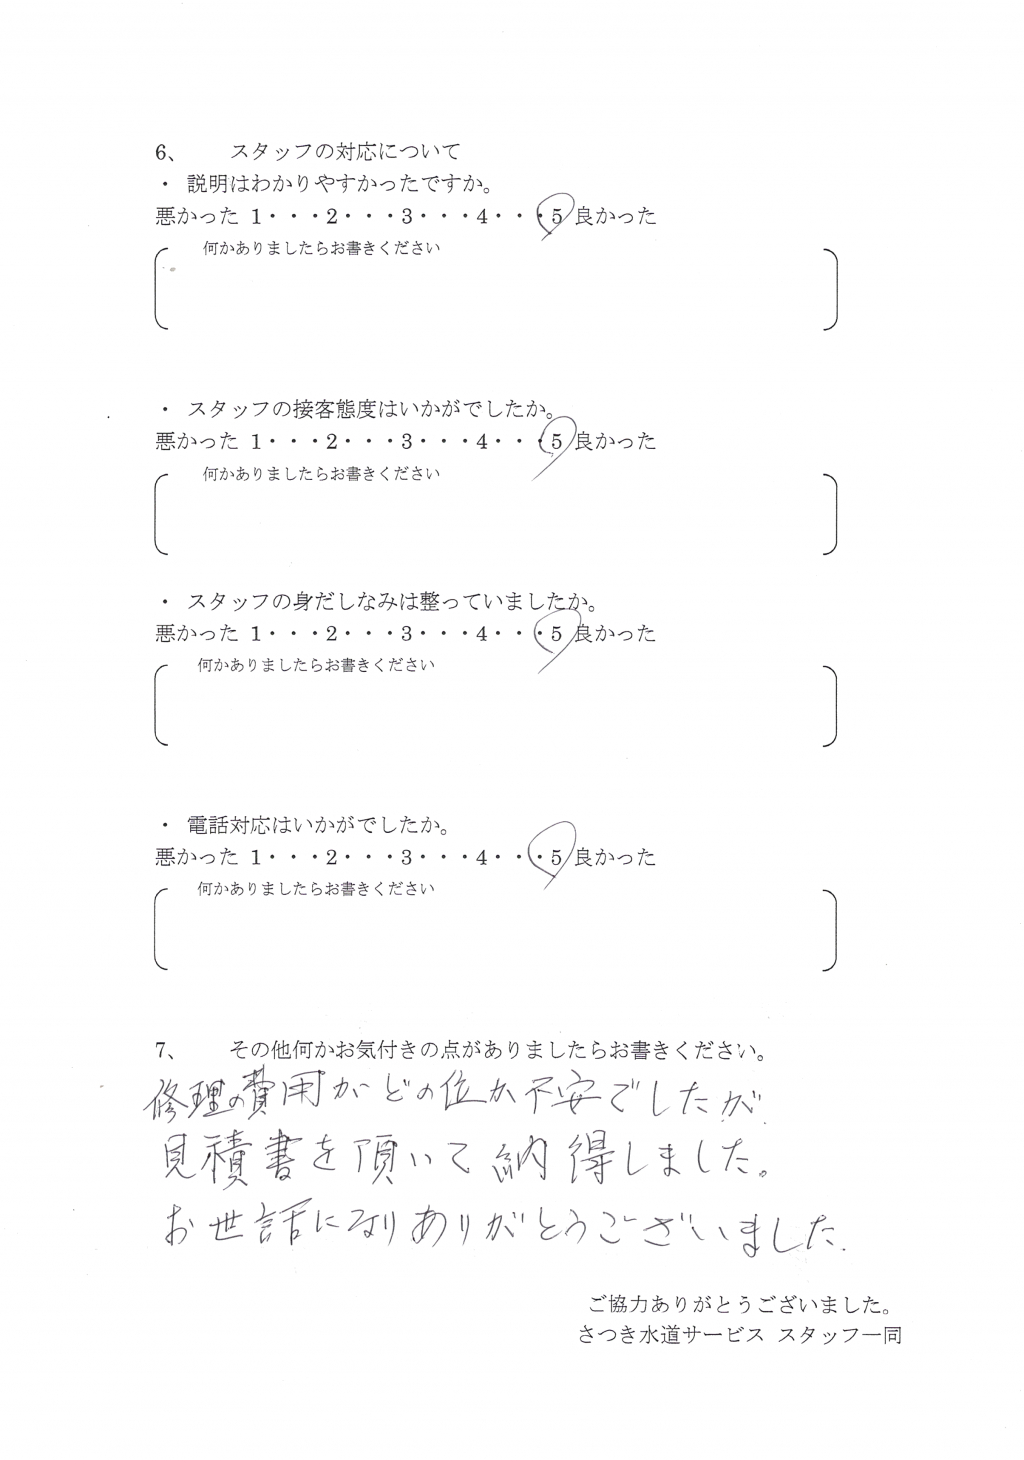 6、 スタッフの対応について
・ 説明はわかりやすかったですか。
悪かった 1・・・2・・・3・・・4・・・5 良かった
何かありましたらお書きください
・ スタッフの接客態度はいかがでしたか。
悪かった 1・・・2・・・3・・・4・・・5 良かった
何かありましたらお書きください
・ スタッフの身だしなみは整っていましたか。
悪かった 1・・・2・・・3・・・4・・・5 良かった
何かありましたらお書きください
・ 電話対応はいかがでしたか。
悪かった 1・・・2・・・3・・・4・・・5 良かった
何かありましたらお書きください
7、 その他何かお気付きの点がありましたらお書きください。
修理の費用がどの位か不安でしたが
見積書を頂いて納得しました。
お世話になりありがとうございました.
ご協力ありがとうございました。
さつき水道サービス スタッフ一同